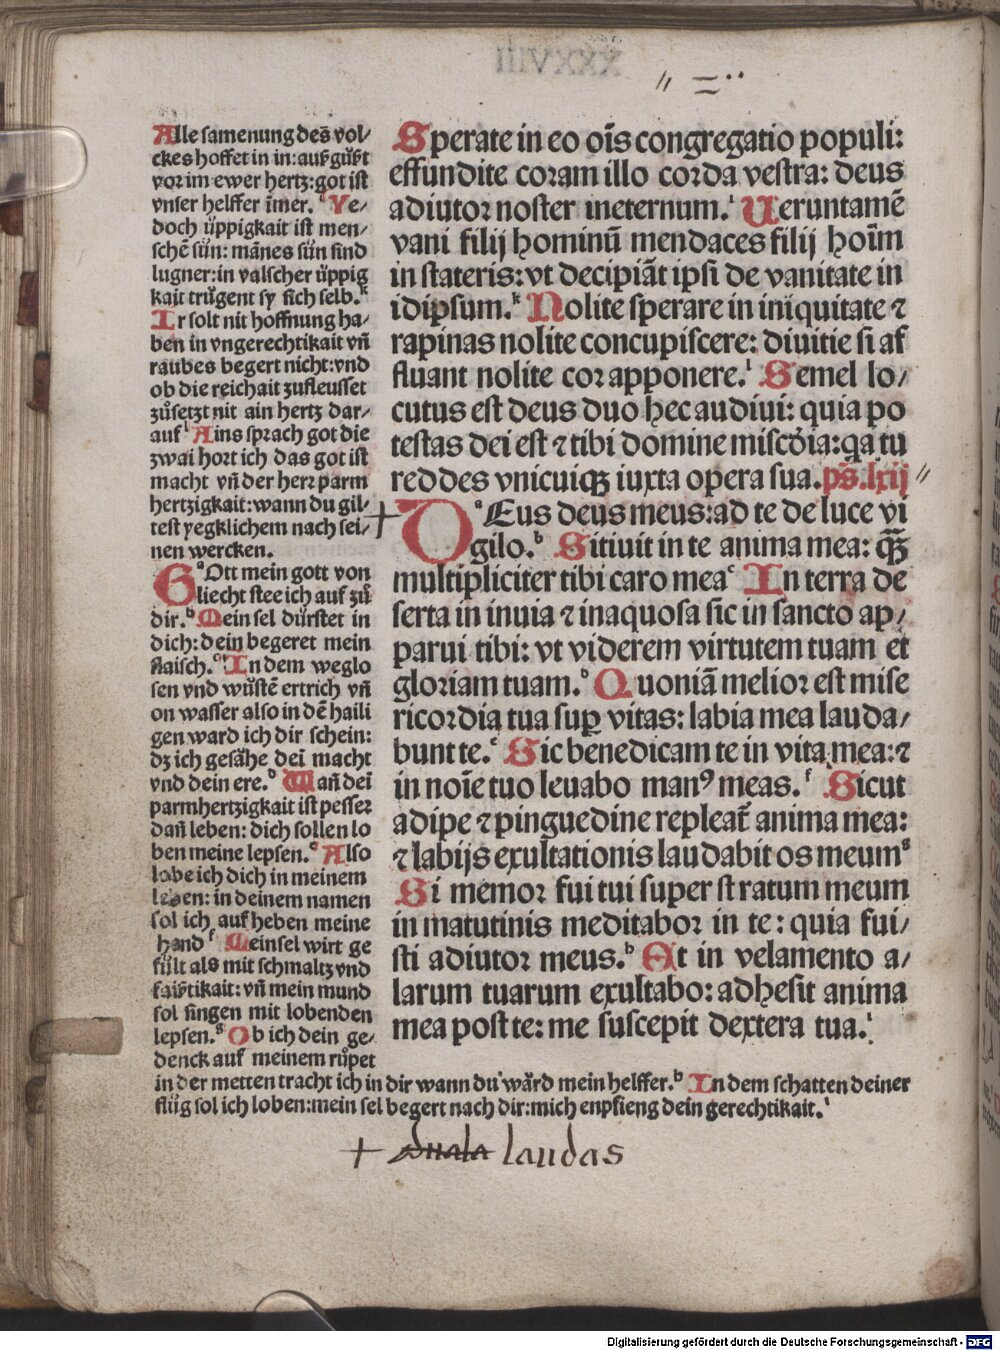 Alle samenung des vol/
ckes hoffet in in: auß gußt
vor im ewer hertz: got ist
vnser helffer im̄er. Ye/
doch üppigkait ist men/
schē sün: mānes sün sind
lugner: in valscher üppig
kait trúgent sy sich selb.k
Ir solt nit hoffnung ha/
ben in vngerechtikait vñ
raubes begert nicht: vnd
ob die reichait zufleusset
zůsetzt nit ain hertz dar/
auf l Ains sprach got die
zwai hort ich das got ist
macht vñ der herr parm
hertzigkait: wann du gil/
test yegklichem nach sei/
nen wercken.
Gaott mein gott von
liecht stee ich auf zů
dir.b Mein sel dürstet in
dich: dein begeret mein
flaisch.c In dem weglo
sen vnd wůstē ertrich vñ
on wasser also in dē haili
gen ward ich dir schein:
dz ich gesähe dei macht
vnd dein ere.d Wañ dei
parmhertzigkait ist pesser
dañ leben: dich sollen lo
ben meine lepsen.e Also
lobe ich dich in meinem
leben: in deinem namen
sol ich auf heben meine
hend f Mein sel wirt ge
fült als mit schmaltz vnd
faißtikait: vñ mein mund
sol singen mit lobenden
lepsen.g Ob ich dein ge/
denck auf meinem růpet
in der metten tracht ich in dir wann du wärd mein helffer.h In dem schatten deiner
flüg sol ich loben: mein sel begert nach dir: mich enpfieng dein gerechtikait.i
Sperate in eo oīs congregatio populi:
effundite coram illo corda vestra: deus
adiutor noster ineternum.i Ueruntamē
vani filij hominū mendaces filij hoīm
in stateris: vt decipiāt ipsi de vanitate in
idipsum.k Nolite sperare in iniquitate ⁊
rapinas nolite concupiscere: diuitie si af
fluant nolite cor apponere.l Semel lo/
cutus est deus duo hec audiui: quia po
testas dei est ⁊ tibi domine mīscd̄ia: qa tu
reddes vnicuiqꝫ iuxta opera sua. ps̄. lxij
+ DaEus deus meus: ad te de luce vi
gilo.b Sitiuit in te anima mea: qꝫ̄
multipliciter tibi caro mea c In terra de
serta in inuia ⁊ inaquosa sic in sancto ap/
parui tibi: vt viderem virtutem tuam et
gloriam tuam.d Quoniā melior est mise
ricordia tua suꝑ vitas: labia mea lauda/
bunt te.e Sic benedicam te in vita mea: ⁊
in noīe tuo leuabo manꝰ meas.f Sicut
adipe ⁊ pinguedine repleat̄ anima mea:
⁊ labijs exultationis laudabit os meum g
Si memor fui tui super stratum meum
in matutinis meditabor in te: quia fui/
sti adiutor meus.h Et in velamento a/
larum tuarum exultabo: adhesit anima
mea post te: me suscepit dextera tua.i
+ laudas
Digitalisierung gefördert durch die Deutsche Forschungsgemeinschaft - DFG